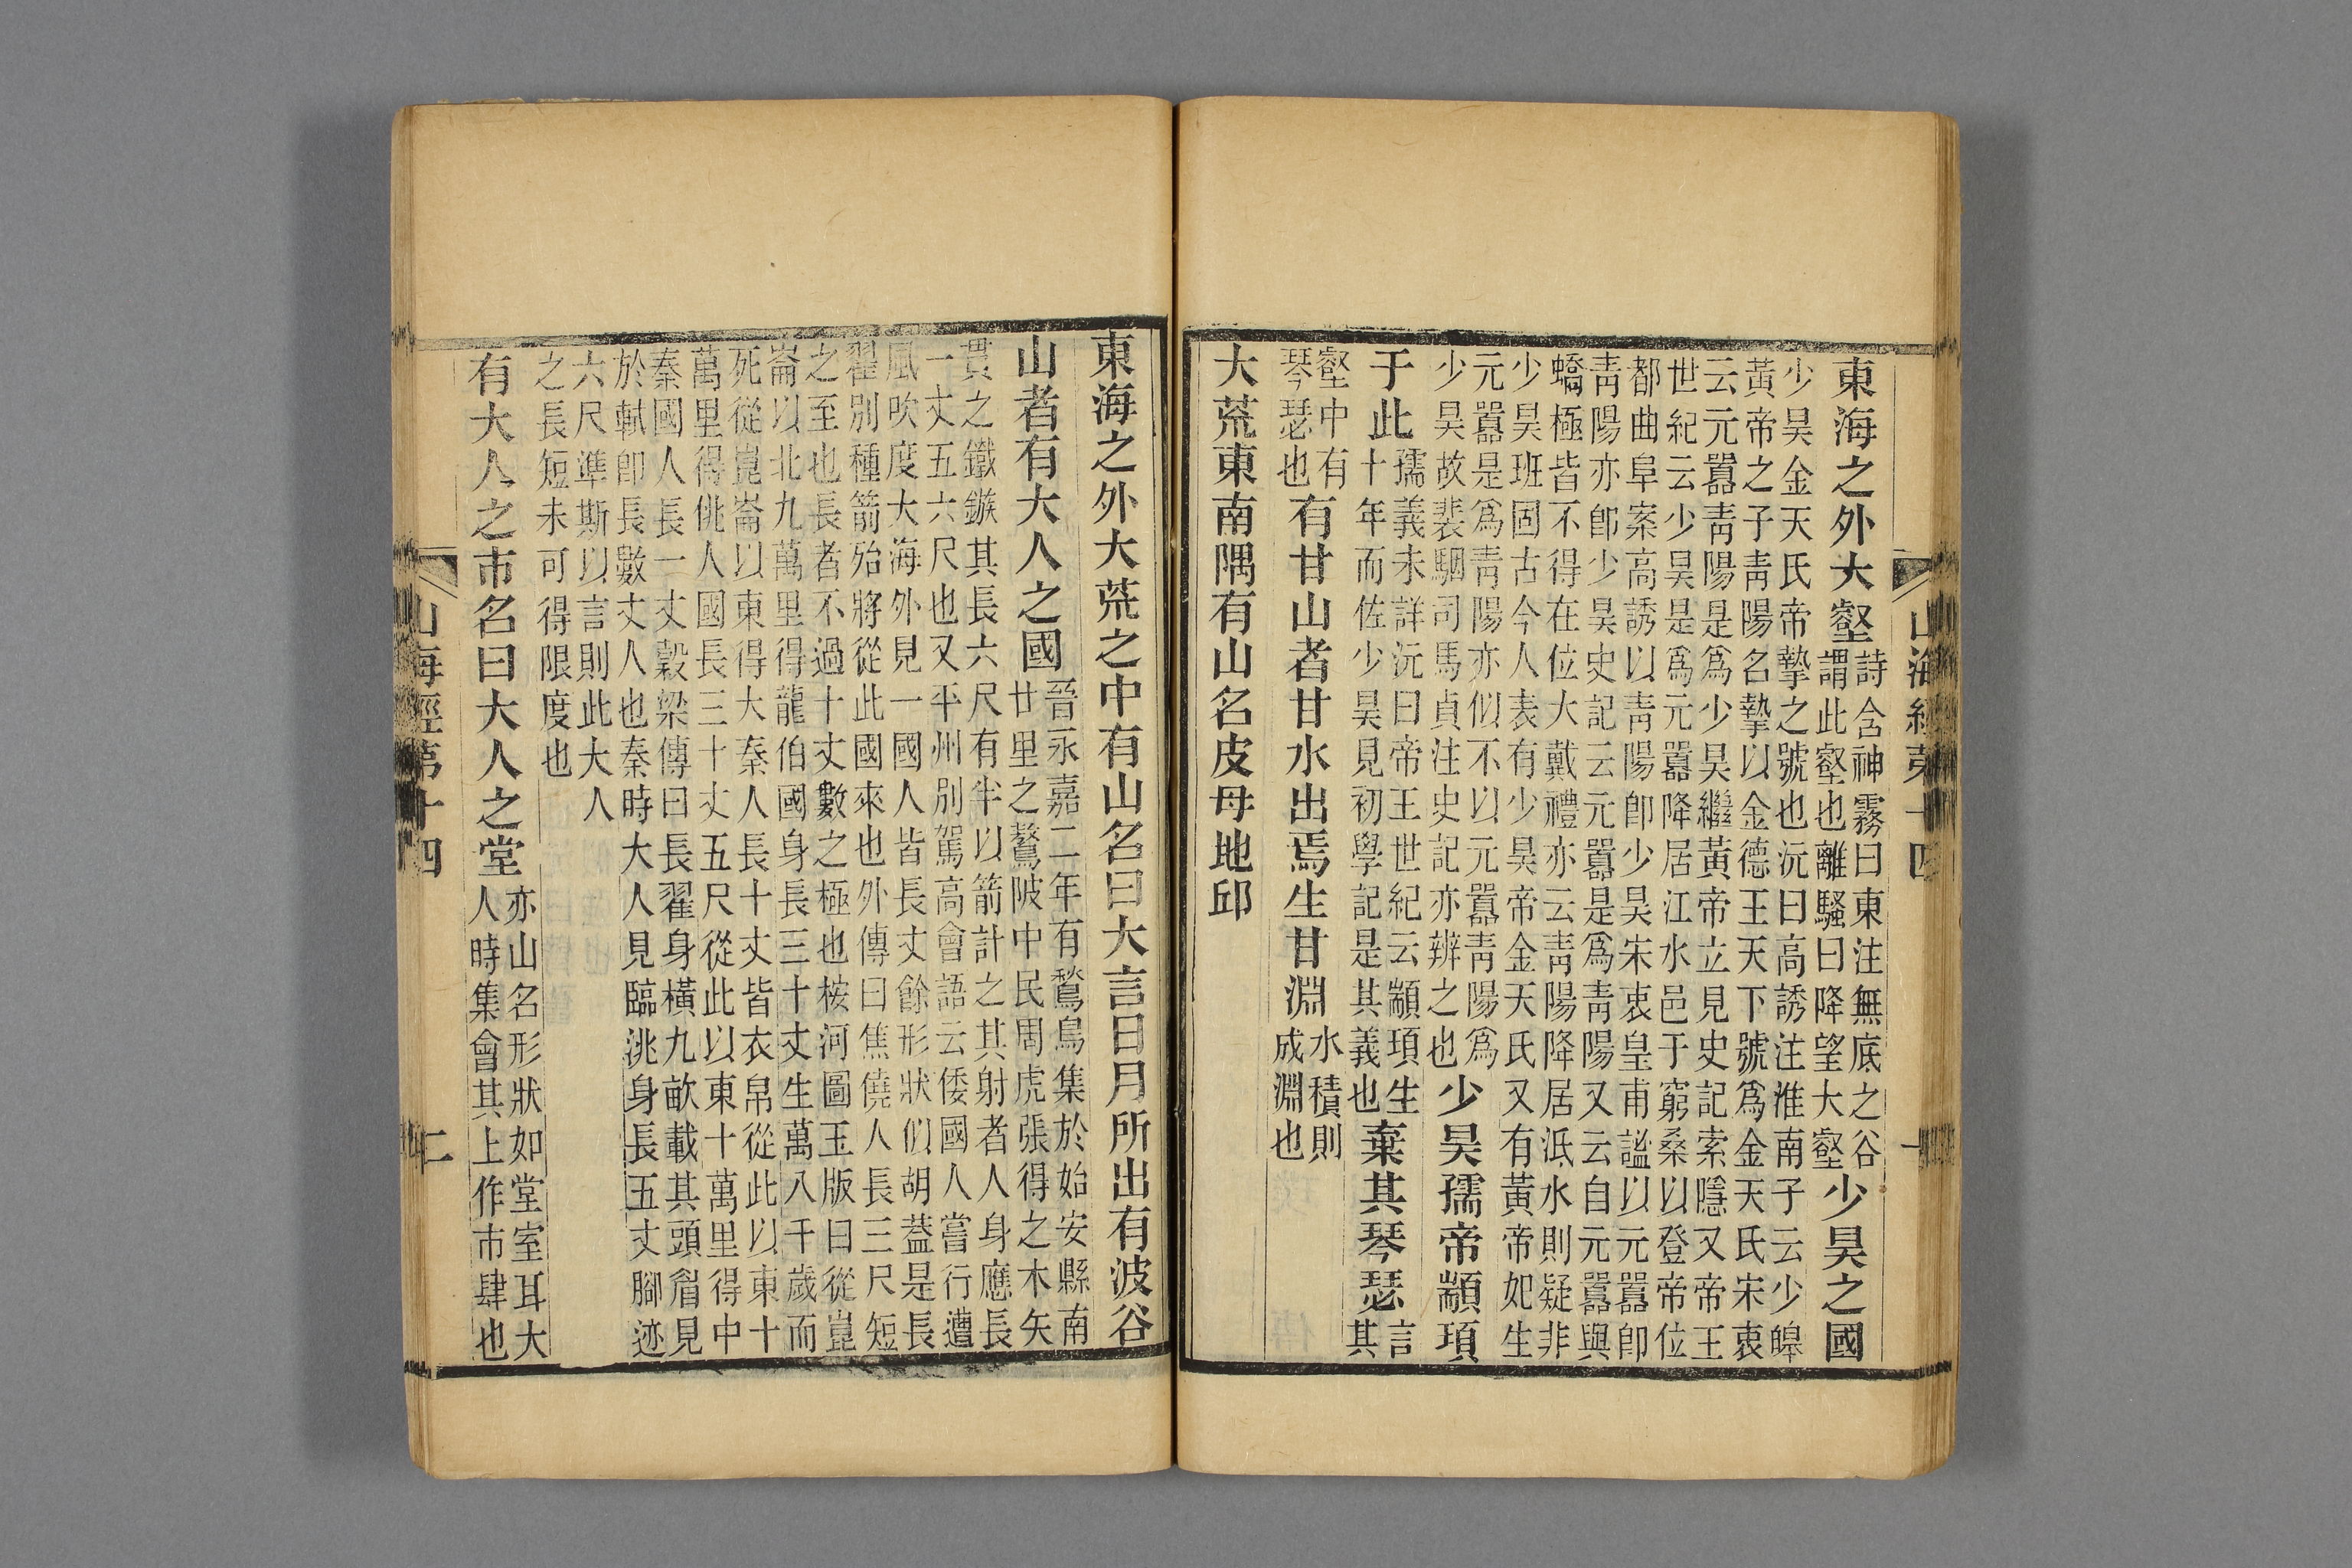 山海經第十四
一
東海之外大壑
詩含神霧曰東注無底之谷
謂此壑也離騷曰降望大壑
少昊之國
少昊金天氏帝摯之號也沅曰高誘注淮南子云少皥
黃帝之子靑陽名摯以金德王天下號爲金天氏宋衷
云元囂靑陽是爲少昊繼黃帝立見史記索隱又帝王
世紀云少昊是爲元囂降居江水邑于窮桑以登帝位
都曲阜案高誘以靑陽卽少昊宋衷皇甫謐以元囂卽
靑陽亦卽少昊史記云元囂是爲靑陽又云自元囂與
蟜極皆不得在位大戴禮亦云靑陽降居泜水則疑非
少昊班固古今人表有少昊帝金天氏又有黃帝妃生
元囂是爲靑陽亦似不以元囂靑陽爲
少昊故裴駰司馬貞注史記亦辨之也
少昊孺帝顓頊
于此
孺義未詳沅曰帝王世紀云顓頊生
十年而佐少昊見初學記是其義也
棄其琴瑟
言其
壑中有
琴瑟也
有甘山者甘水出焉生甘淵
水積則
成淵也
大荒東南隅有山名皮母地邱
東海之外大荒之中有山名曰大言日月所出有波谷
山者有大人之國
晉永嘉二年有鶖鳥集於始安縣南
廿里之鶩陂中民周虎張得之木矢
貫之鐵鏃其長六尺有半以箭計之其射者人身應長
一丈五六尺也又平州別駕高會語云倭國人嘗行遭
風吹度大海外見一國人皆長丈餘形狀似胡蓋是長
翟別種箭殆將從此國來也外傳曰焦僥人長三尺短
之至也長者不過十丈數之極也桉河圖玉版曰從崑
崙以北九萬里得龍伯國身長三十丈生萬八千歲而
死從崑崙以東得大秦人長十丈皆衣帛從此以東十
萬里得佻人國長三十丈五尺從此以東十萬里得中
秦國人長一丈穀梁傳曰長翟身橫九畝載其頭眉見
於軾卽長數丈人也秦時大人見臨洮身長五丈腳迹
六尺準斯以言則此大人
之長短未可得限度也
有大人之市名曰大人之堂
亦山名形狀如堂室耳大
人時集會其上作市肆也
山海經第十四
二